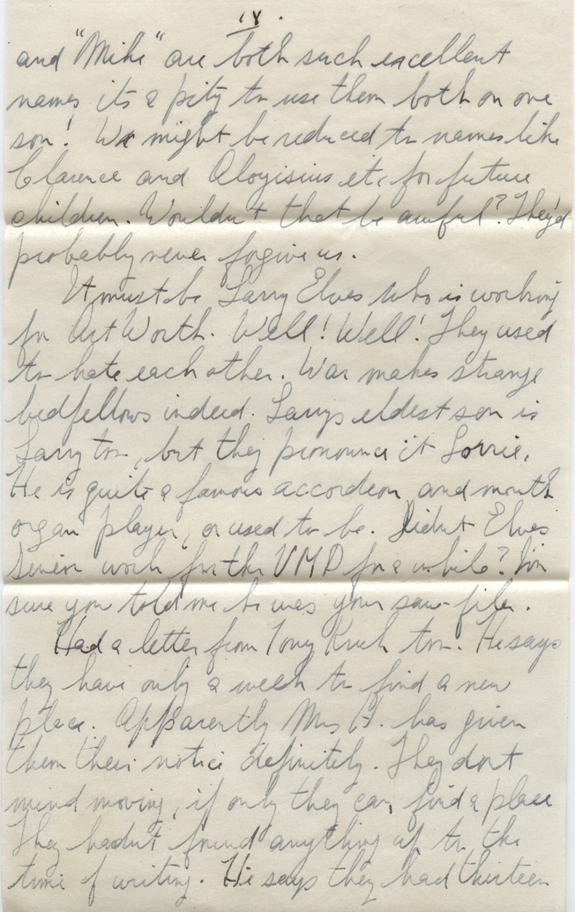 IV.
and "Mike" are both such excellent
names its a pity to use them both on one
son! We might be reduced to names like
Clarence and Aloyisius etc for future
children. Wouldn't that be awful? They'd
probably never forgive us.
It must be Larry Elves who is working
for Art Worth. Well! Well! They used
to hate each other. War makes strange
bedfellows indeed. Larrys eldest son is
Larry too, but they pronounce it Lorrie.
He is quite a famous accordeon and mouth
organ player, or used to be. Didn't Elves
Senior work for the VMD for a while? I'm
sure you told me he was your saw-filer.
Had a letter from Tony too. He says
they have only a week to find a new
place. Apparently Mrs H. has given
them their notice definitely. They don't
mind moving, if only they can find a place
They hadn't found anything up to the
time of writing. He says they had thirteen